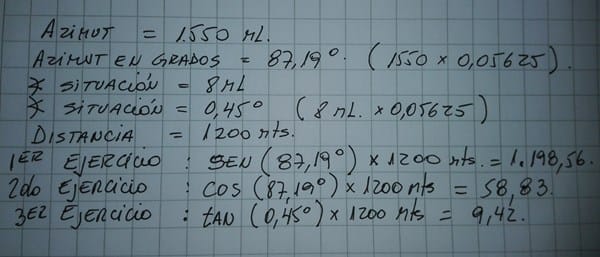 AZIMUT = 1.550 ML.
AZIMUT EN GRADOS = 87,19°. (1550 x 0,05625).
∡ SITUACIÓN = 8ML
∡ SITUACIÓN = 0,45° (8 ML. x 0,05625)
DISTANCIA = 1200 mts.
1ER EJERCICIO : SEN (87,19°) x 1200 mts. = 1.198,56.
2do EJERCICIO : COS (87,19°) x 1200 mts = 58,83.
3ER EJERCICIO : tAN (0,45°) x 1200 mts = 9,42.